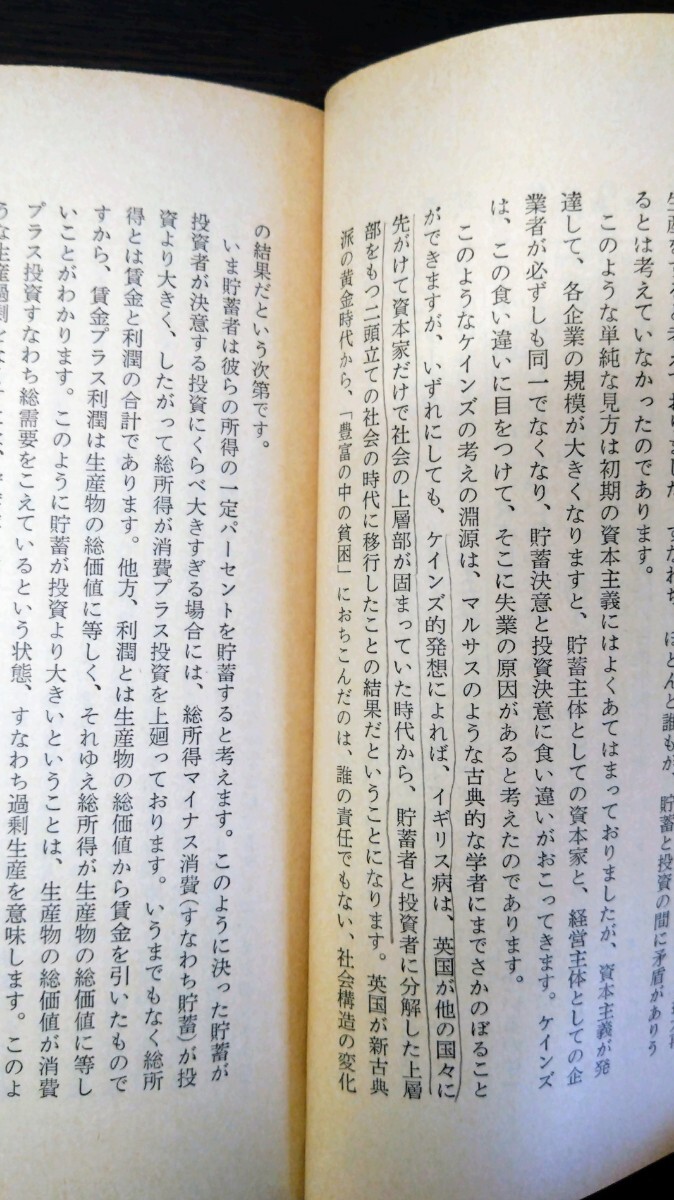 生産をすると考えておりました。すなわち、ほとんど誰もが、貯蓄と投資の間に矛盾がありう
るとは考えていなかったのであります。
このような単純な見方は初期の資本主義にはよくあてはまっておりましたが、資本主義が発
達して、各企業の規模が大きくなりますと、貯蓄主体としての資本家と、経営主体としての企
業者が必ずしも同一でなくなり、貯蓄決意と投資決意に食い違いがおこってきます。ケインズ
は、この食い違いに目をつけて、そこに失業の原因があると考えたのであります。
このようなケインズの考えの淵源は、マルサスのような古典的な学者にまでさかのぼること
ができますが、いずれにしても、ケインズ的発想によれば、イギリス病は、英国が他の国々に
先がけて資本家だけで社会の上層部が固まっていた時代から、貯蓄者と投資者に分解した上層
部をもつ二頭立ての社会の時代に移行したことの結果だということになります。英国が新古典
派の黄金時代から、「豊富の中の貧困」におちこんだのは、誰の責任でもない、社会構造の変化
の結果だという次第です。
いま貯蓄者は彼らの所得の一定パーセントを貯蓄すると考えます。このように決った貯蓄が
投資者が決意する投資にくらべ大きすぎる場合には、総所得マイナス消費(すなわち貯蓄)が投
資より大きく、したがって総所得が消費プラス投資を上廻っております。いうまでもなく総所
得とは賃金と利潤の合計であります。他方、利潤とは生産物の総価値から賃金を引いたもので
すから、賃金プラス利潤は生産物の総価値に等しく、それゆえ総所得が生産物の総価値に等し
いことがわかります。このように貯蓄が投資より大きいということは、生産物の総価値が消費
プラス投資すなわち総需要をこえているという状態、すなわち過剰生産を意味します。このよ
うな生産過剰